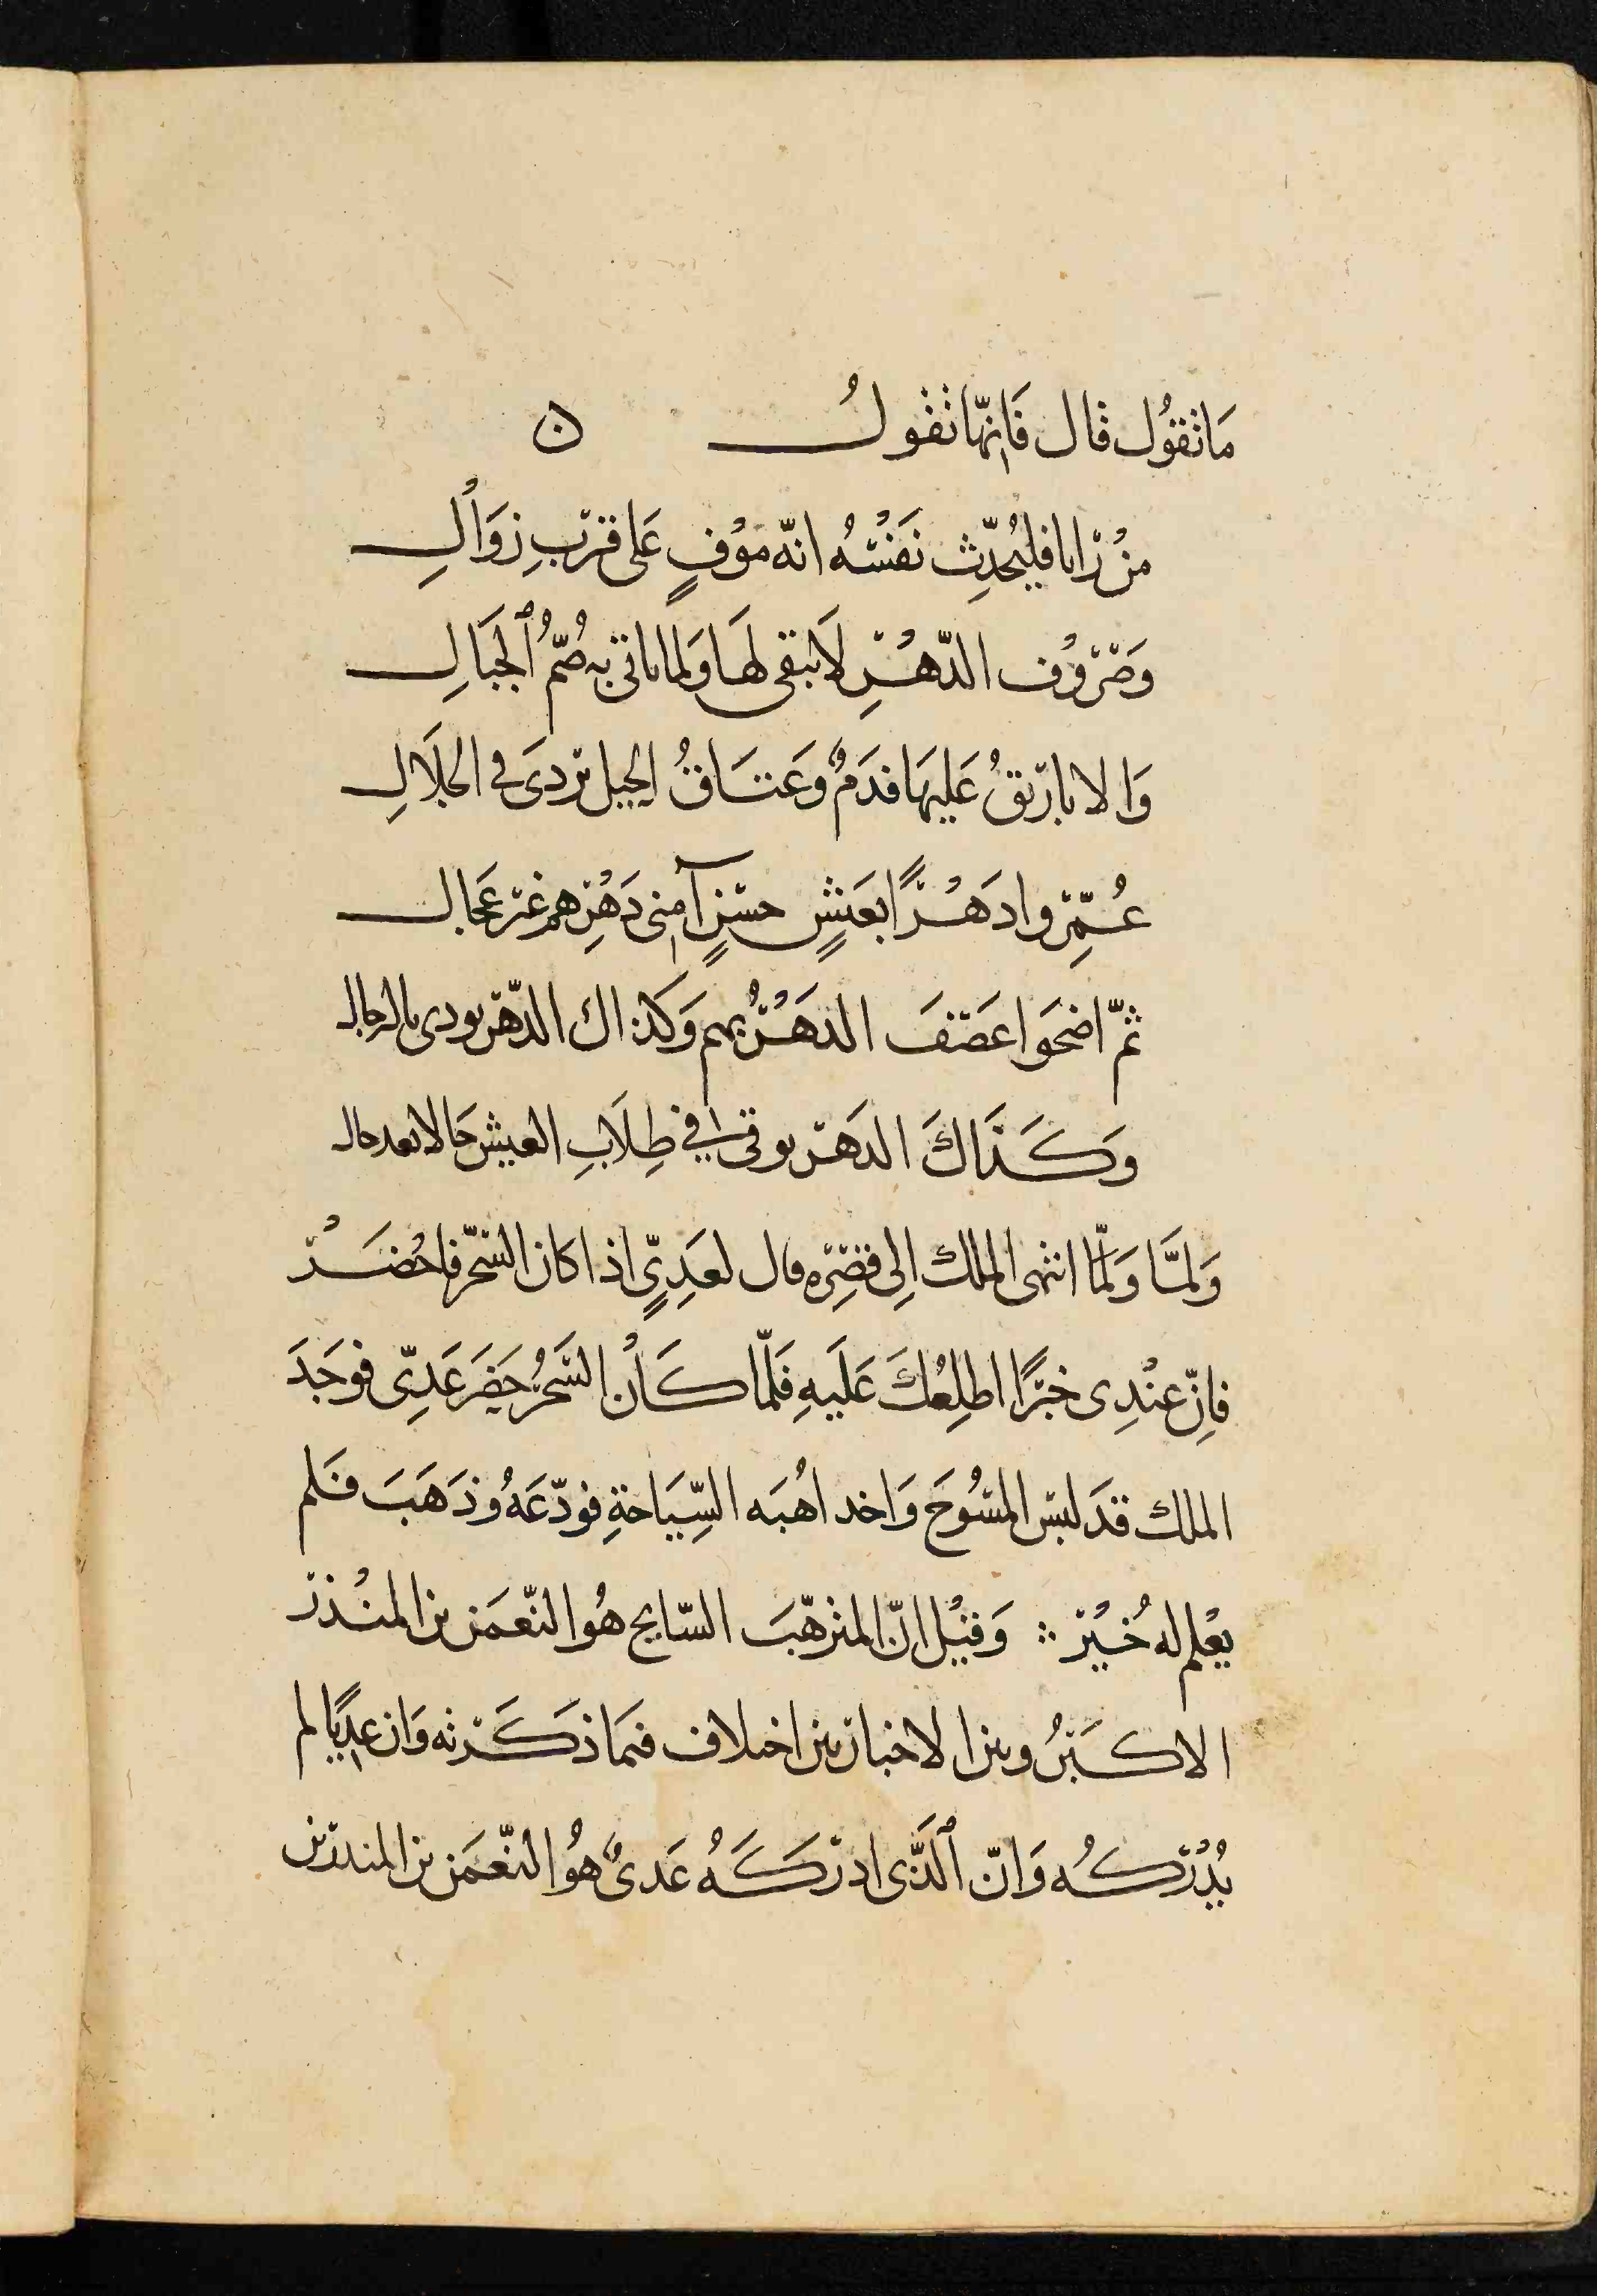 مَا نَقُول قال فَإنّها تَقُولُ ن
منْ رْانا فليُحدِّث نَفْسَهُ انّه موْفٍ عَلى قرْبِ زوَالِ
وَصْرَوْف الدّهْرِ لَا يبقى لهَا وَلما ياتى به صُمُّ ٱلْجَبَالِ
وَالا باريقُ عَليهَا فدَمٌ وعَتَاقُ الخيل تردىَ في الجلَالِ
عُمِّروا دَهْرًا بعَيشٍ حسَنٍ آمِنى دَهْرِهم غير عَجال
ثمّ اضحَوا عَصَفَ الدهَرُ بهم وَكذاك الدّهر يودى بالرجال
وَكَذَاكَ الدهَر في طِلَابِ العيشْ حَالا بعد حال
وَلمَّا وَلمّا انتهى الملك اِلى قصَرِه قال لعَدِيٍّ اذا كان السّحَر فاحْضَرْ
فإنّ عنْدِى خبَرًا اطلِعُكَ عَلَيهِ فَلمّا كَانْ السَّحَرُ حَضَر عَدِىّ فوَجَدَ
الملك قدَ لبسَ المسُوحَ وَاخد اهُبَه السِّيَاحةِ فودّعَهُ وذهَبَ فَلم
يعْلم له خُبْر ∴ وَقيْل انّ المترهّبَ السّايح هُو النّعمَن بن المنْذر
الاكبَرُ وبين الاخبارين اختلاف فيمَا ذكَرته وَان عدِيًا لم
يُدْركُه وَانّ ٱلَّذَى ادركَهُ عَدىٌ هُو النّعمَن بن المنذر بن